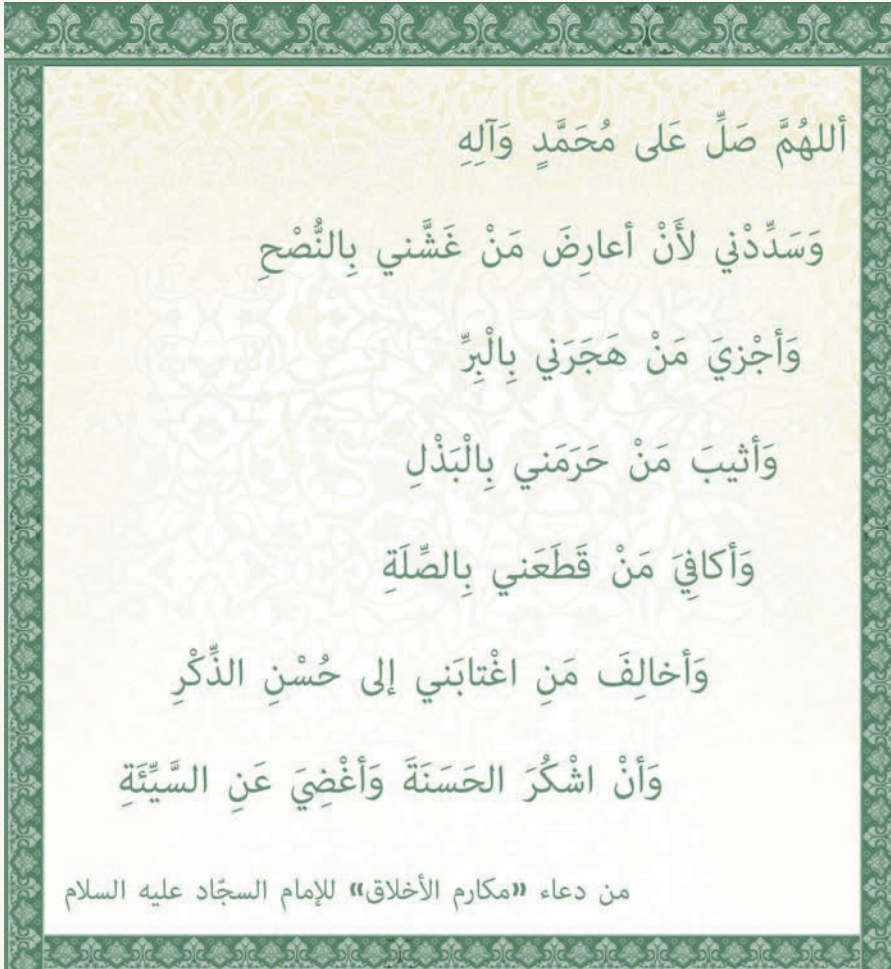 أللهُمَّ صَلِّ عَلى مُحَمَّدٍ وَآلِهِ
وَسَدِّدْني لأَنْ أعارِضَ مَنْ غَشَّني بِالنُّصْحِ
وَأجْزيَ مَنْ هَجَرَني بِالْبِرِّ
وَأثيبَ مَنْ حَرَمَني بِالْبَذْلِ
وَأكافِيَ مَنْ قَطَعَني بِالصِّلَةِ
وَأخالِفَ مَنِ اغْتابَني إلى حُسْنِ الذِّكْرِ
وَأنْ اشْكُرَ الحَسَنَةَ وَأغْضِيَ عَنِ السَّيِّئَةِ
من دعاء «مكارم الأخلاق» للإمام السجّاد عليه السلام